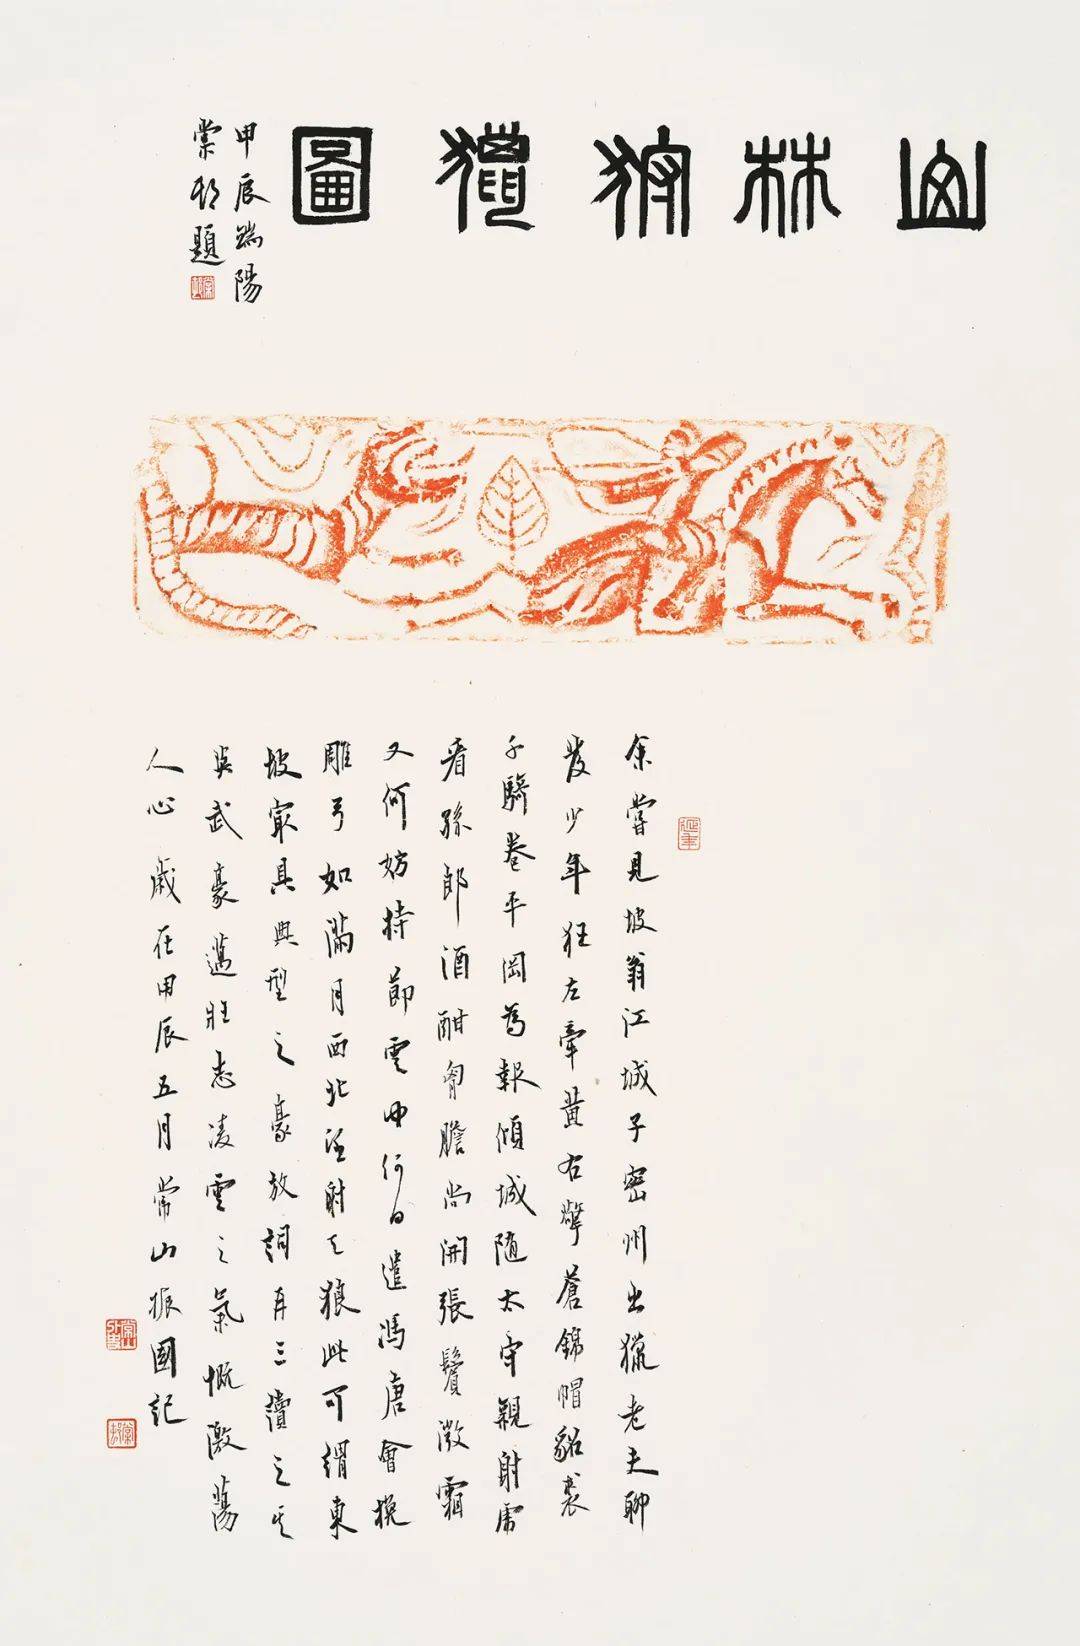 山林狩獵圖
甲辰端陽
棠邨題
延年
余嘗見坡翁江城子密州出獵老夫聊
發少年狂左牽黃右擎蒼錦帽貂裘
千騎卷平岡為報傾城隨太守親射虎
看孫郎酒酣胷膽尚開張鬢微霜
又何妨持節雲中何日遣馮唐會挽
雕弓如滿月西北望射天狼此可謂東
坡冣具典型之豪放詞再三讀之其
英武豪邁壯志凌雲之氣慨激蕩
人心 歲在甲辰五月常山振國記